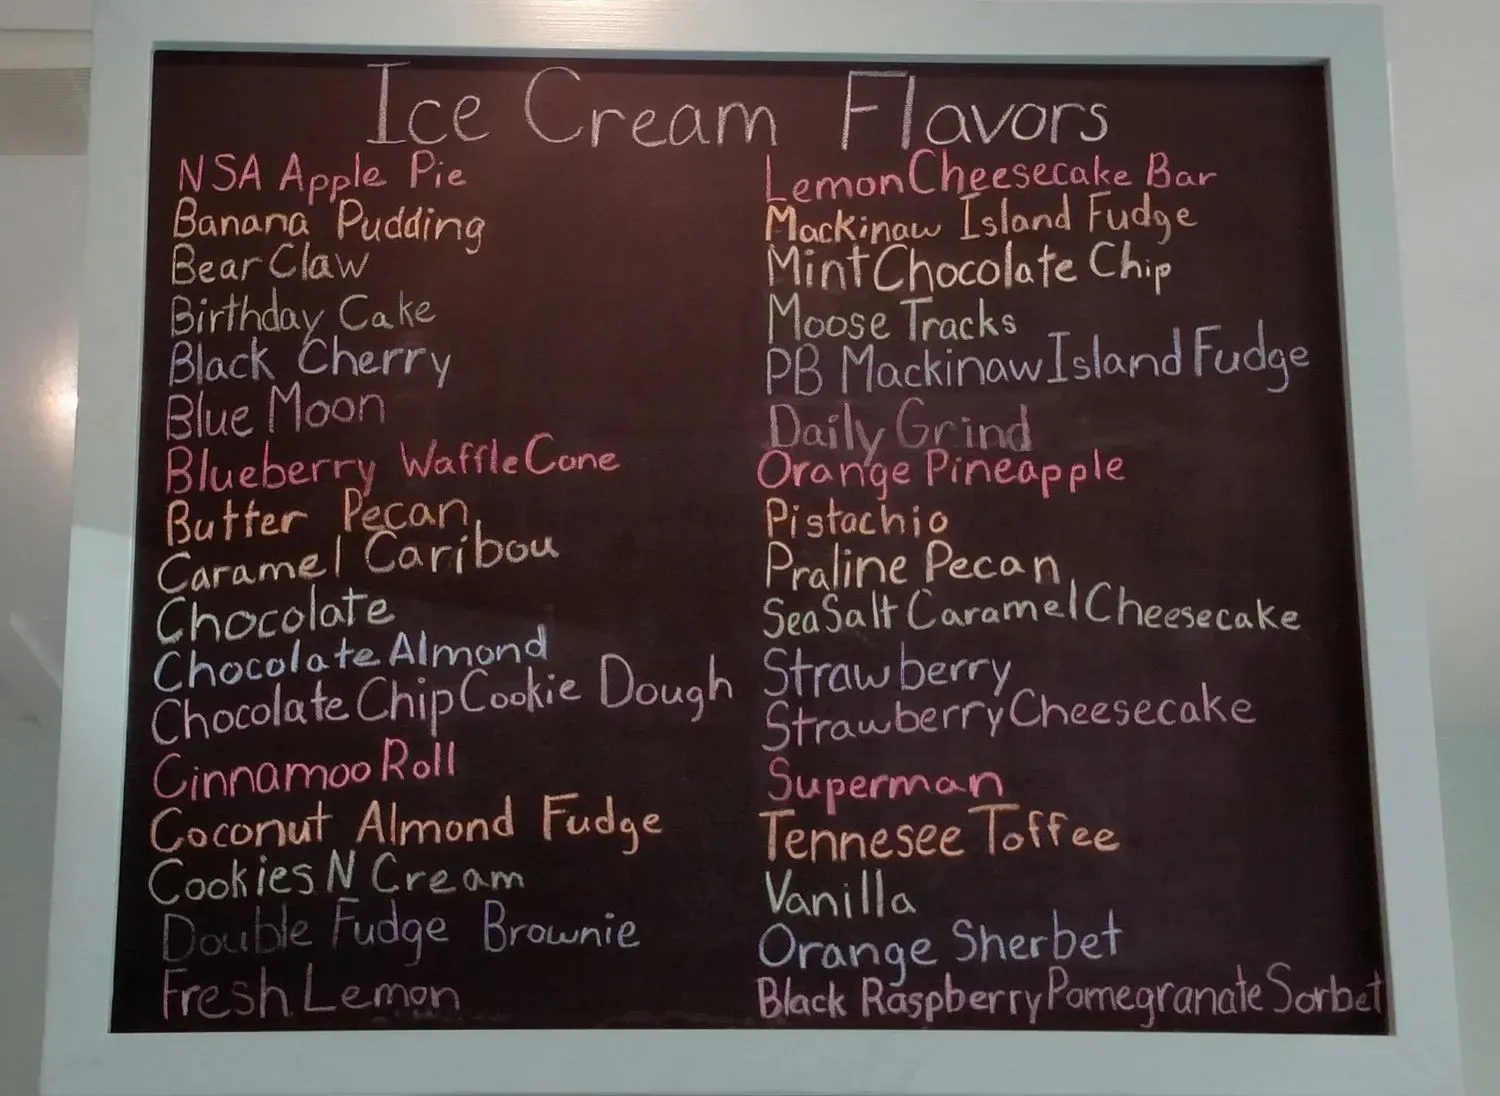 Ice Cream Flavors
NSA Apple Pie
Banana Pudding
Bear Claw
Birthday Cake
Black Cherry
Blue Moon
Blueberry Waffle Cone
Butter Pecan
Caramel Caribou
Chocolate
Chocolate Almond
Chocolate Chip Cookie Dough
Cinnamoo Roll
Coconut Almond Fudge
Cookies N Cream
Double Fudge Brownie
Fresh Lemon
Lemon Cheesecake Bar
Mackinaw Island Fudge
Mint Chocolate Chip
Moose Tracks
PB Mackinaw Island Fudge
Daily Grind
Orange Pineapple
Pistachio
Praline Pecan
Sea Salt Caramel Cheesecake
Strawberry
Strawberry Cheesecake
Superman
Tennesee Toffee
Vanilla
Orange Sherbet
Black Raspberry Pomegranate Sorbet